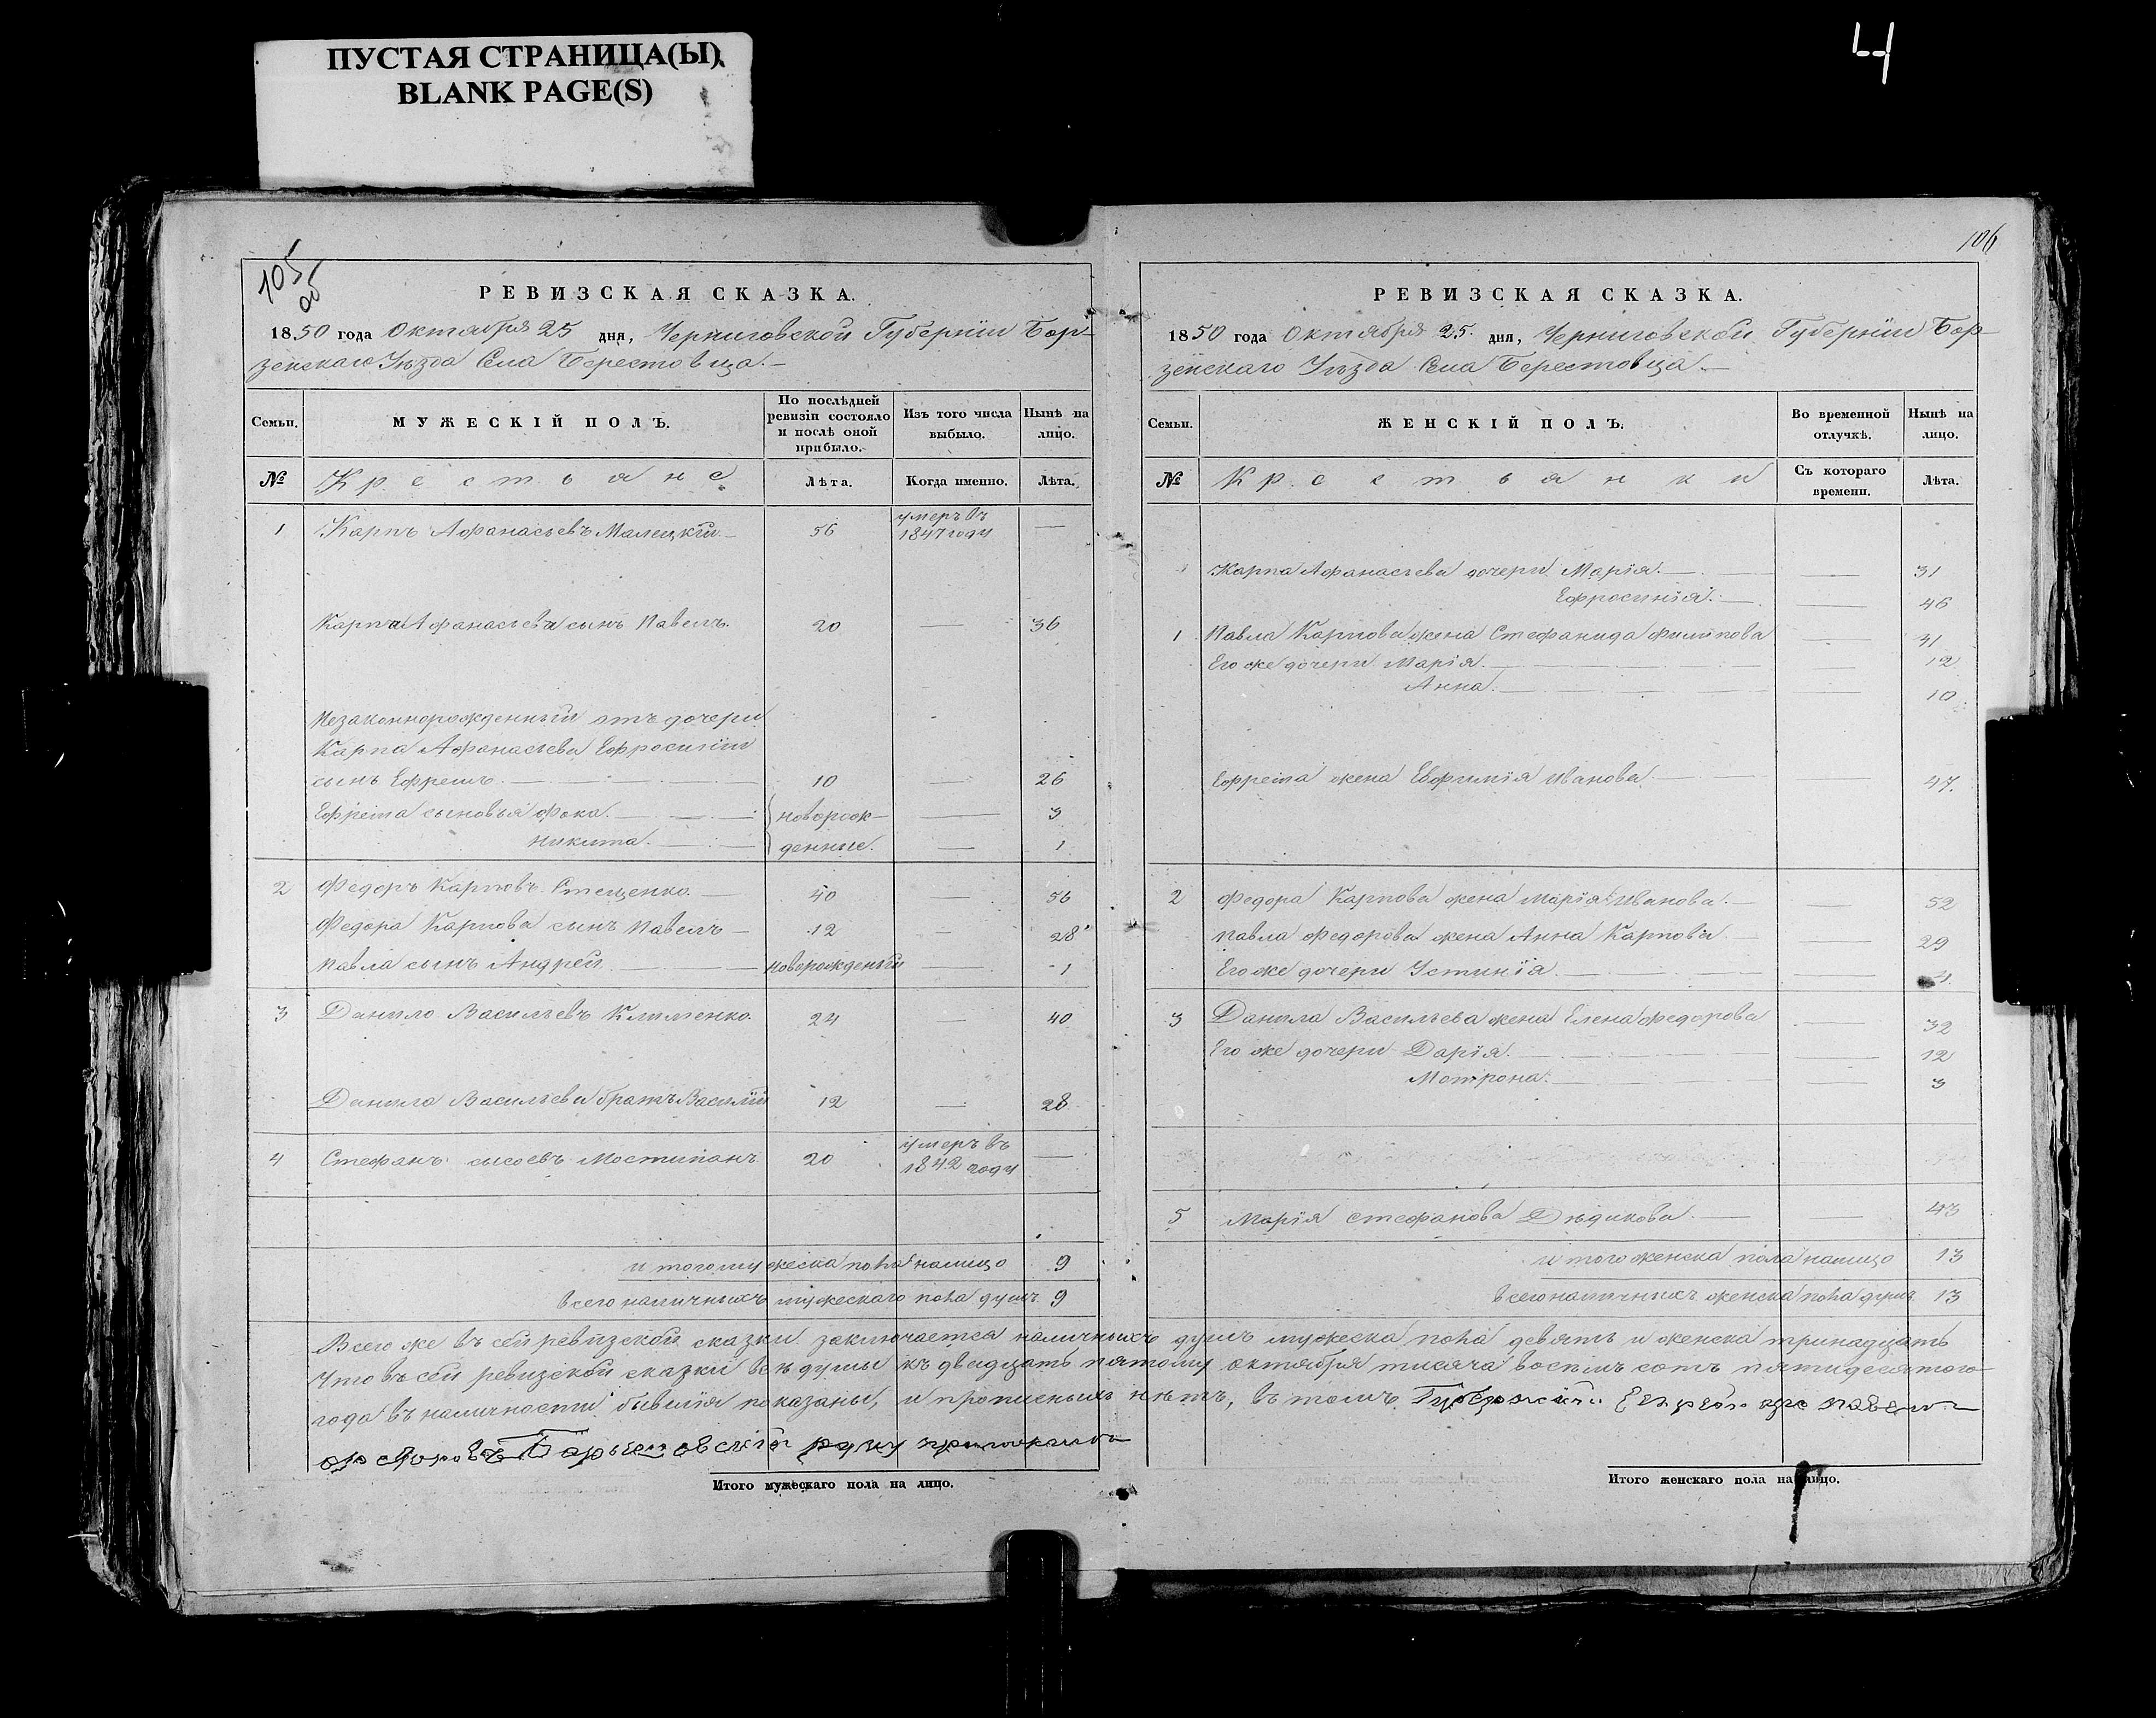 ПУСТАЯ СТРАНИЦА(Ы)
BLANK PAGE(S)
4
105
об
РЕВИЗСКАЯ СКАЗКА.
1850 года Октября 25 дня, Черниговской Губерніи Бор-
зенскаго Уѣзда Села Берестовца.
Семьи. МУЖЕСКІЙ ПОЛЪ. По послѣдней ревизіи состояло и послѣ оной прибыло. Изъ того числа выбыло. Нынѣ на лицо.
№ Крестьяне Лѣта. Когда именно. Лѣта.
1 Карпъ Афанасьевъ Малецкій 56 умеръ въ 1847 году —
Карпа Афанасьева сынъ Павелъ. 20 — 36
Незаконнорожденный отъ дочери
Карпа Афанасьева Ефросиніи
сынъ Ефремъ. 10 — 26
Ефрема сыновья Фока. новорож- — 3
Никита. денные. — 1
2 Федоръ Карповъ Стещенко. 40 — 56
Федора Карпова сынъ Павелъ 12 — 28
Павла сынъ Андрей новорожденный — 1
3 Данило Васильевъ Клименко. 24 — 40
Данила Васильева братъ Василій 12 — 28
4 Стефанъ Сысоевъ Мостипанъ 20 умеръ въ 1842 году —
итого мужеска пола налицо 9
всего наличныхъ мужескаго пола душъ 9
106
РЕВИЗСКАЯ СКАЗКА.
1850 года Октября 25. дня, Черниговской Губерніи Бор-
зенскаго Уѣзда Села Берестовца.
Семьи. ЖЕНСКІЙ ПОЛЪ. Во временной отлучкѣ. Нынѣ на лицо.
№ Крестьянки Съ котораго времени. Лѣта.
Карпа Афанасьева дочери Марія. — 31
Ефросинія. — 46
1 Павла Карпова жена Стефанида Филипова — 41
Его же дочери Марія. — 12
Анна. — 10
Ефрема жена Евфимія Иванова — 47.
2 Федора Карпова жена Марія Иванова. — 52
Павла Федорова жена Анна Карпова — 29
Его же дочери Устинія. — 4
3 Данила Васильева жена Елена Федорова — 32
Его же дочери Дарія. — 12
Мотрона. — 3
5 Марія Стефанова Дѣдикова. — 43
итого женска пола налицо 13
всего наличныхъ женска пола душъ 13
Всего же въ сей ревизской сказки заключается наличныхъ душъ мужеска пола девять и женска тринадцать
Что въ сей ревизской сказки всѣ душы къ двадцать пятому октября тисяча восемь сотъ пятидесятого
года въ наличности бывшія показаны, и прописныхъ нѣтъ, въ томъ Губернскій
руку приложилъ
Итого мужескаго пола на лицо.
Итого женскаго пола на лицо.